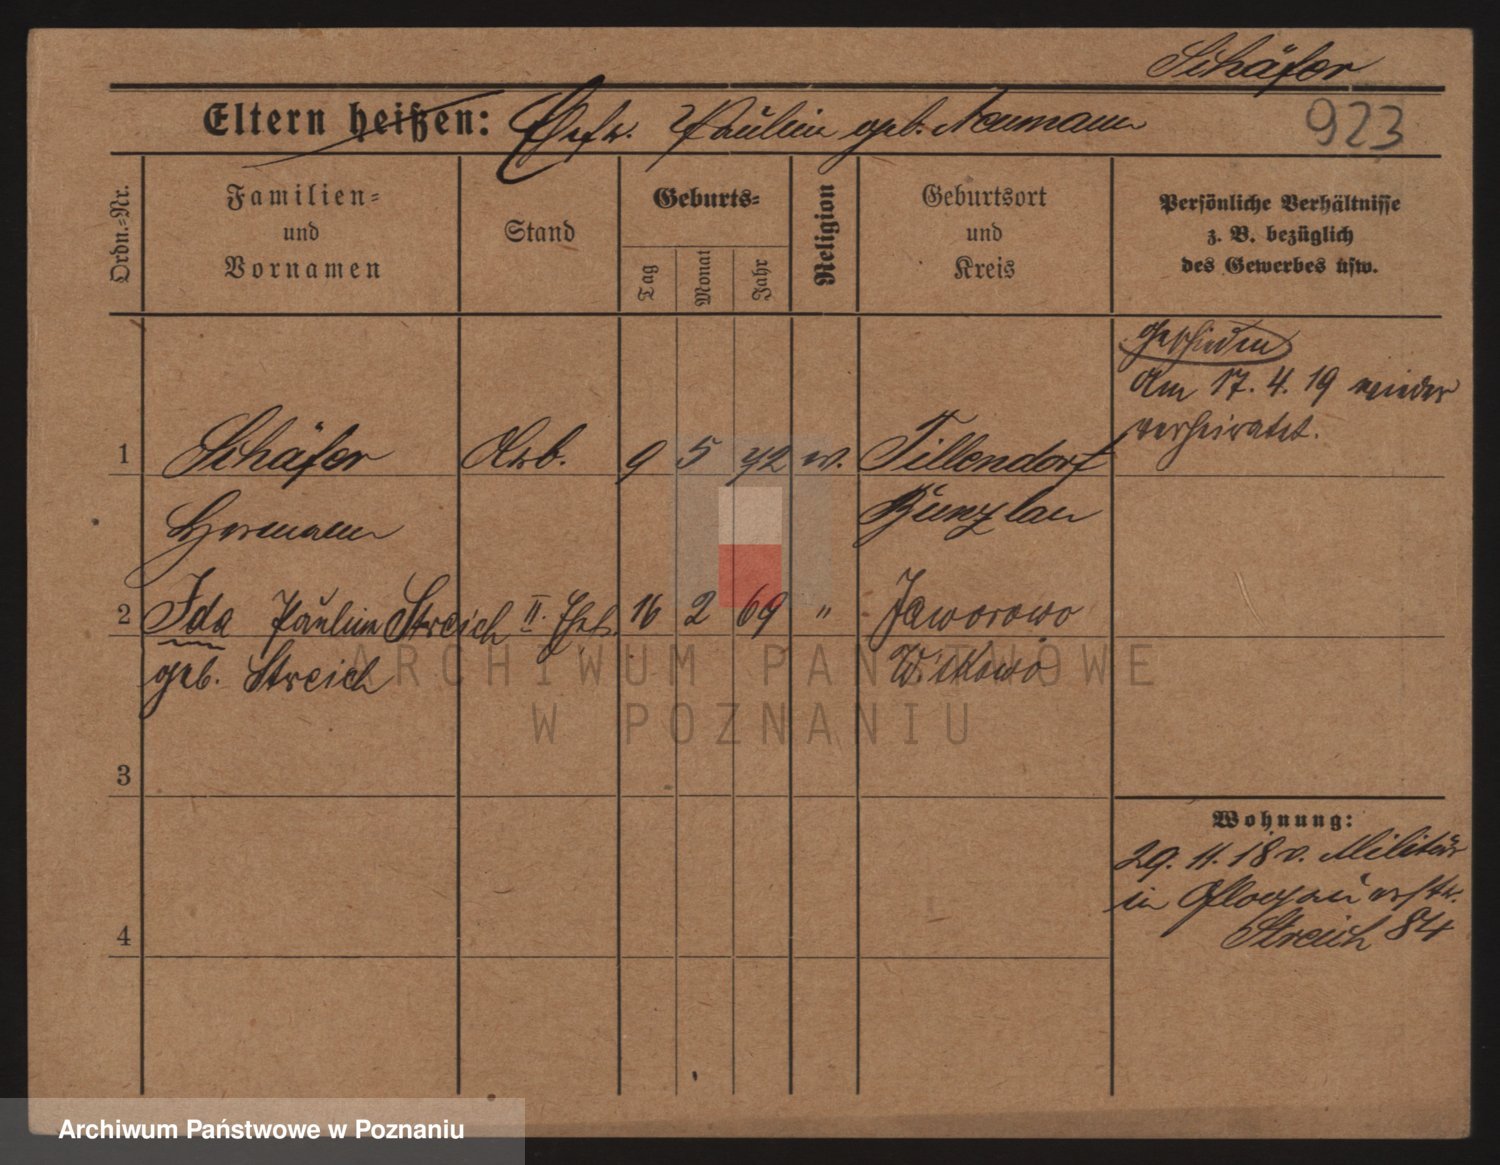 Schäfer
Eltern heißen: Ehefr. Paulin geb. Neumann 923
Ordn.-Nr. Familien- und Vornamen Stand Geburts- Tag Monat Jahr Religion Geburtsort und Kreis Persönliche Verhältnisse z. B. bezüglich des Gewerbes usw.
geschieden
Am 17. 4. 19 wieder
verheiratet.
1 Schäfer Arb. 9 5 72 ev. Tillendorf
Hermann Bunzlau
2 Ida Paulin Streich II. Ehef. 16 2 69 " Jaworowo
geb. Streich Witkowo
3
Wohnung:
29. 11. 18 v. Militär
in Glogau
4
Streich 84
ARCHIWUM PAŃSTWOWE
W POZNANIU
Archiwum Państwowe w Poznaniu